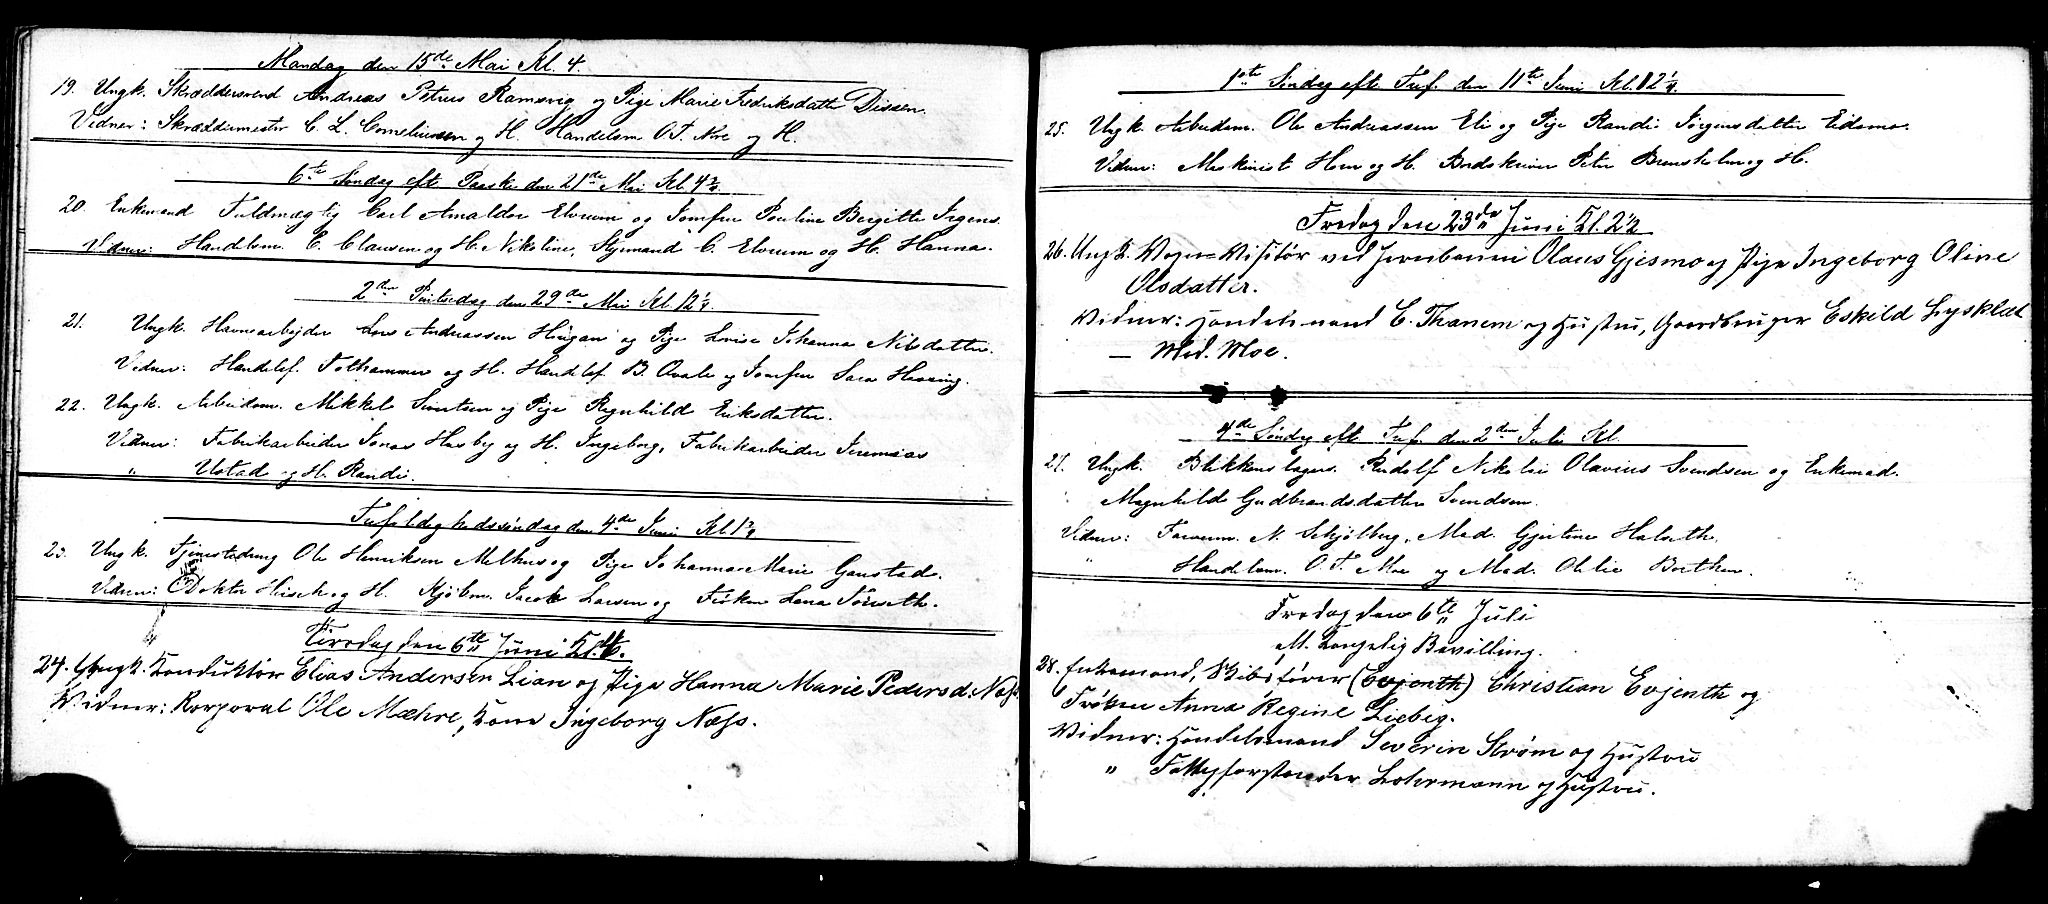 Mandag den 15de Mai Kl. 4.
19. Ungk. Skræddersvend Andreas Petrus Ramsvig og Pige Marie Fredriksdatter Dissen.
Vidner: Skræddermester C. L. Corneliussen og H. Handelsm. O. T. Moe og H.
6te Søndag eft Paaske den 21de Mai Kl. 4¾
20. Enkemand Fuldmægtig Carl Arnaldor Elvrum og Jomfru Pauline Bergitte Irgens.
Vidner: Handelsm. C. Clausen og H. Nikoline, Styrmand C. Elvrum og H. Hanna.
2den Pintsedag den 29de Mai Kl. 12¼
21. Ungk. Havnearbejder Andreassen Haugan og Pige Lovise Johanna Nilsdatter.
Vidner: Handelsf. Folhammer og H. Handelsf. B. Qvale og Jomfru Sara Hessing.
22. Ungk. Arbeidsm. Mikkel Sivertsen og Pige Regnhild Eriksdatter.
Vidner: Fabrikarbeider Jonas Hasby og H. Ingeborg, Fabrikarbeider Jeremias
" Ustad og H. Randi.
Trefoldighedssøndag den 4de Juni Kl. 1¾
23. Ungk. Tjenestedreng Ole Henriksen Melhus og Pige Johanna Marie Ganstad.
Vidner: Doktor Hirsch og H. Kjøbm. Jacob Larsen og Frøken Lena Tønseth.
Tirsdag den 6te Juni Kl.
24. Ungk. Konduktør Elias Andersen Lian og Pige Hanna Marie Pedersd. Næss
Vidner: Korporal Ole Mæhre, Kone Ingeborg Næss.
1ste Søndag eft Tref. den 11te Juni Kl. 12¼
25. Ungk. Arbeidsm. Ole Andreassen Eli og Pige Randi Jørgensdatter Eidsmo.
Vidner: Maskinist Hoen og H. Peter Brensholm og H.
Fredag den 23de Juni Kl. 2½
26. Ungk. Vogn-Visitør ved Jernbanen Olaus Gjesmo og Pige Ingeborg Oline
Olsdatter.
Vidner: Handelsmand E. Thanem og Hustru, Gaardbruger Eskild Lysklæt
— Mad. Moe.
4de Søndag eft Tref. den 2den Juli Kl.
27. Ungk. Blikkenslagers. Rudolf Nikolai Olavius Svendsen og Enkemad.
" Magnhild Gudbrandsdatter Svendsen.
Vidner: N. Schjølberg, Mad. Gjertine Halseth.
" Handelsm. O. T. Moe og Mad. Olilie Berthen.
Fredag den 6te Juli
M. Kongelig Bevilling.
28. Enkemand, Skibsfører (Evjenth) Christian Evjenth og
Frøken Anna Regine Liebig.
Vidner: Handelsmand Severin Strøm og Hustru
" Fattigforstander Lohrmann og Hustru.